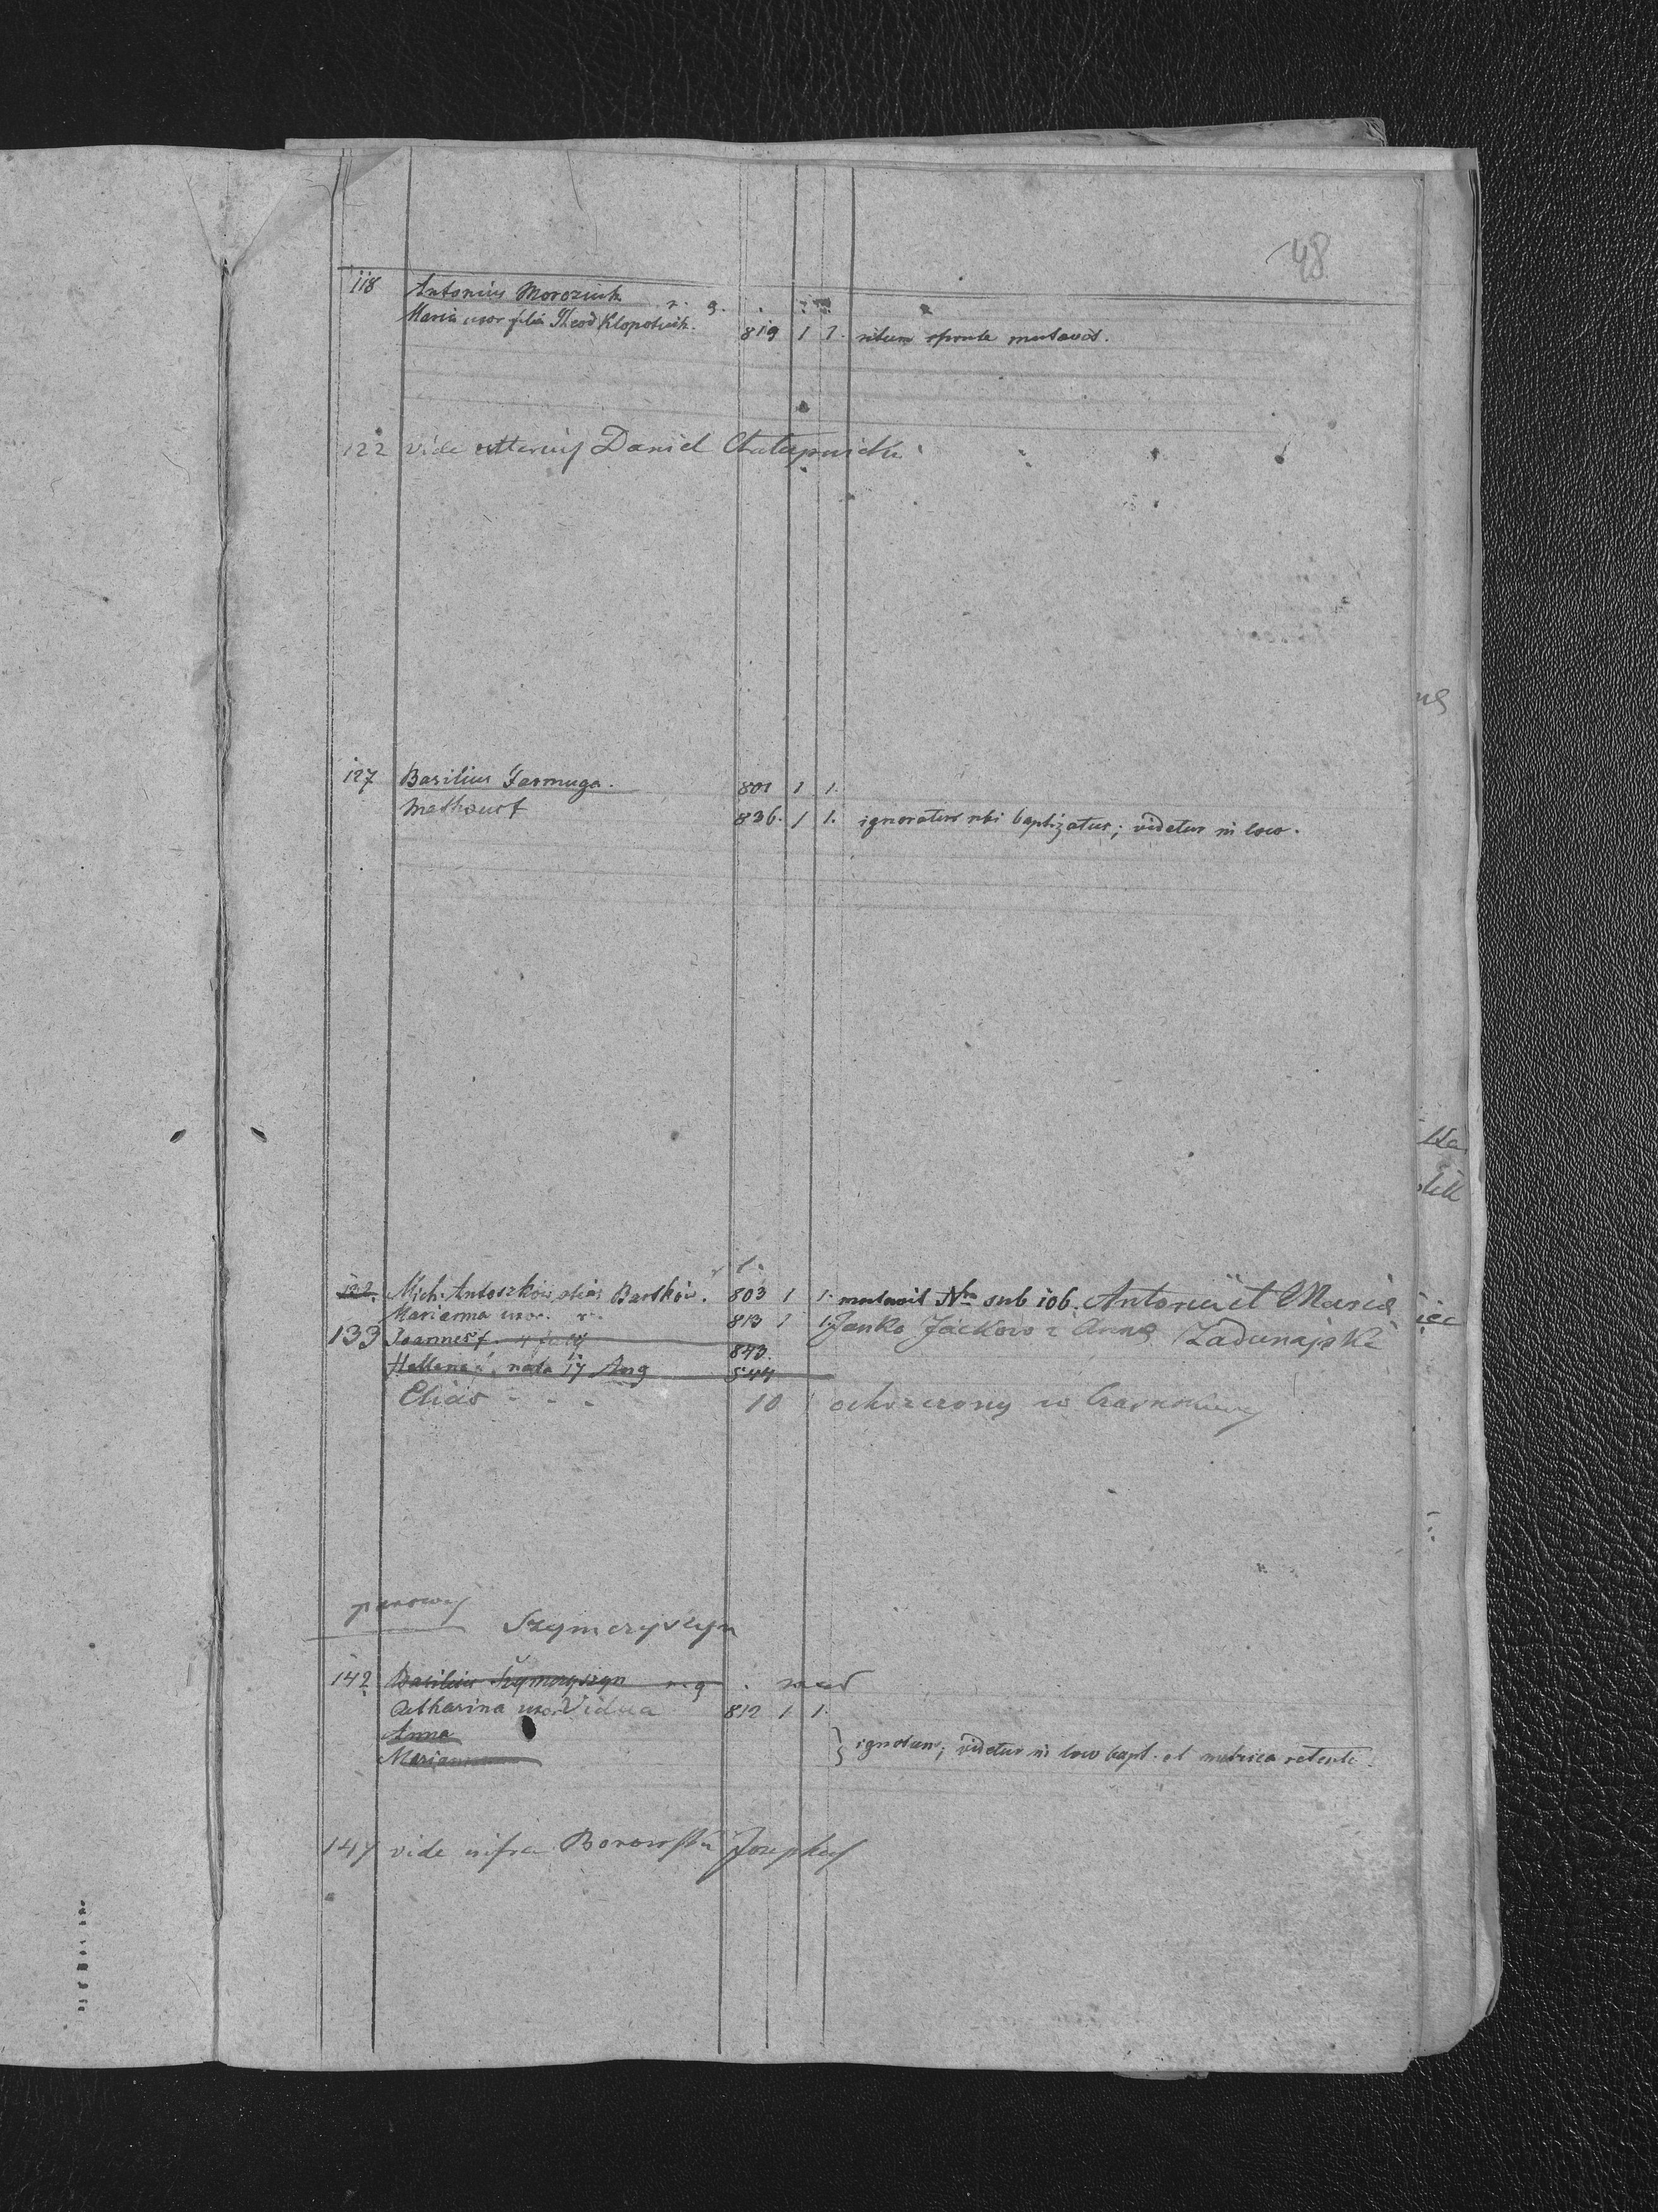 48
118 Antonius Moroziuk r. g.
Maria uxor filia Theod Klopotiuk. 819 1 1. ritum sponte mutavit.
122 vide ulterius Daniel Chalupnicki
127 Basilius Jarmuga. 801 1 1.
Mathaeus f 836. 1 1. ignoratur ubi baptizatus; videtur in loco.
132. Mich. Antoszków alias Bartków. 803 1 1. mutavit Nrm sub 106. Antonii et Maria
Marianna uxor. r. 813 1 1. Janko Jackow i Anna Zadunajski
133 Joannes f. 843.
Hellena f. nata 17 Aug 844
Elias - - - 10 ochrzczony w
Szymczyszyn
142 Basilius Szymczyszyn r. g
Catharina uxor Vidua 812 1 1.
Anna
Marianna } ignotum; videtur in loco bapt. et metrica
147 vide infra Borowski Josephus